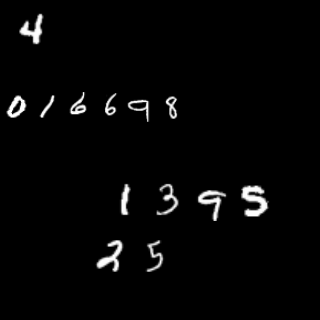 4
016698
1395
25